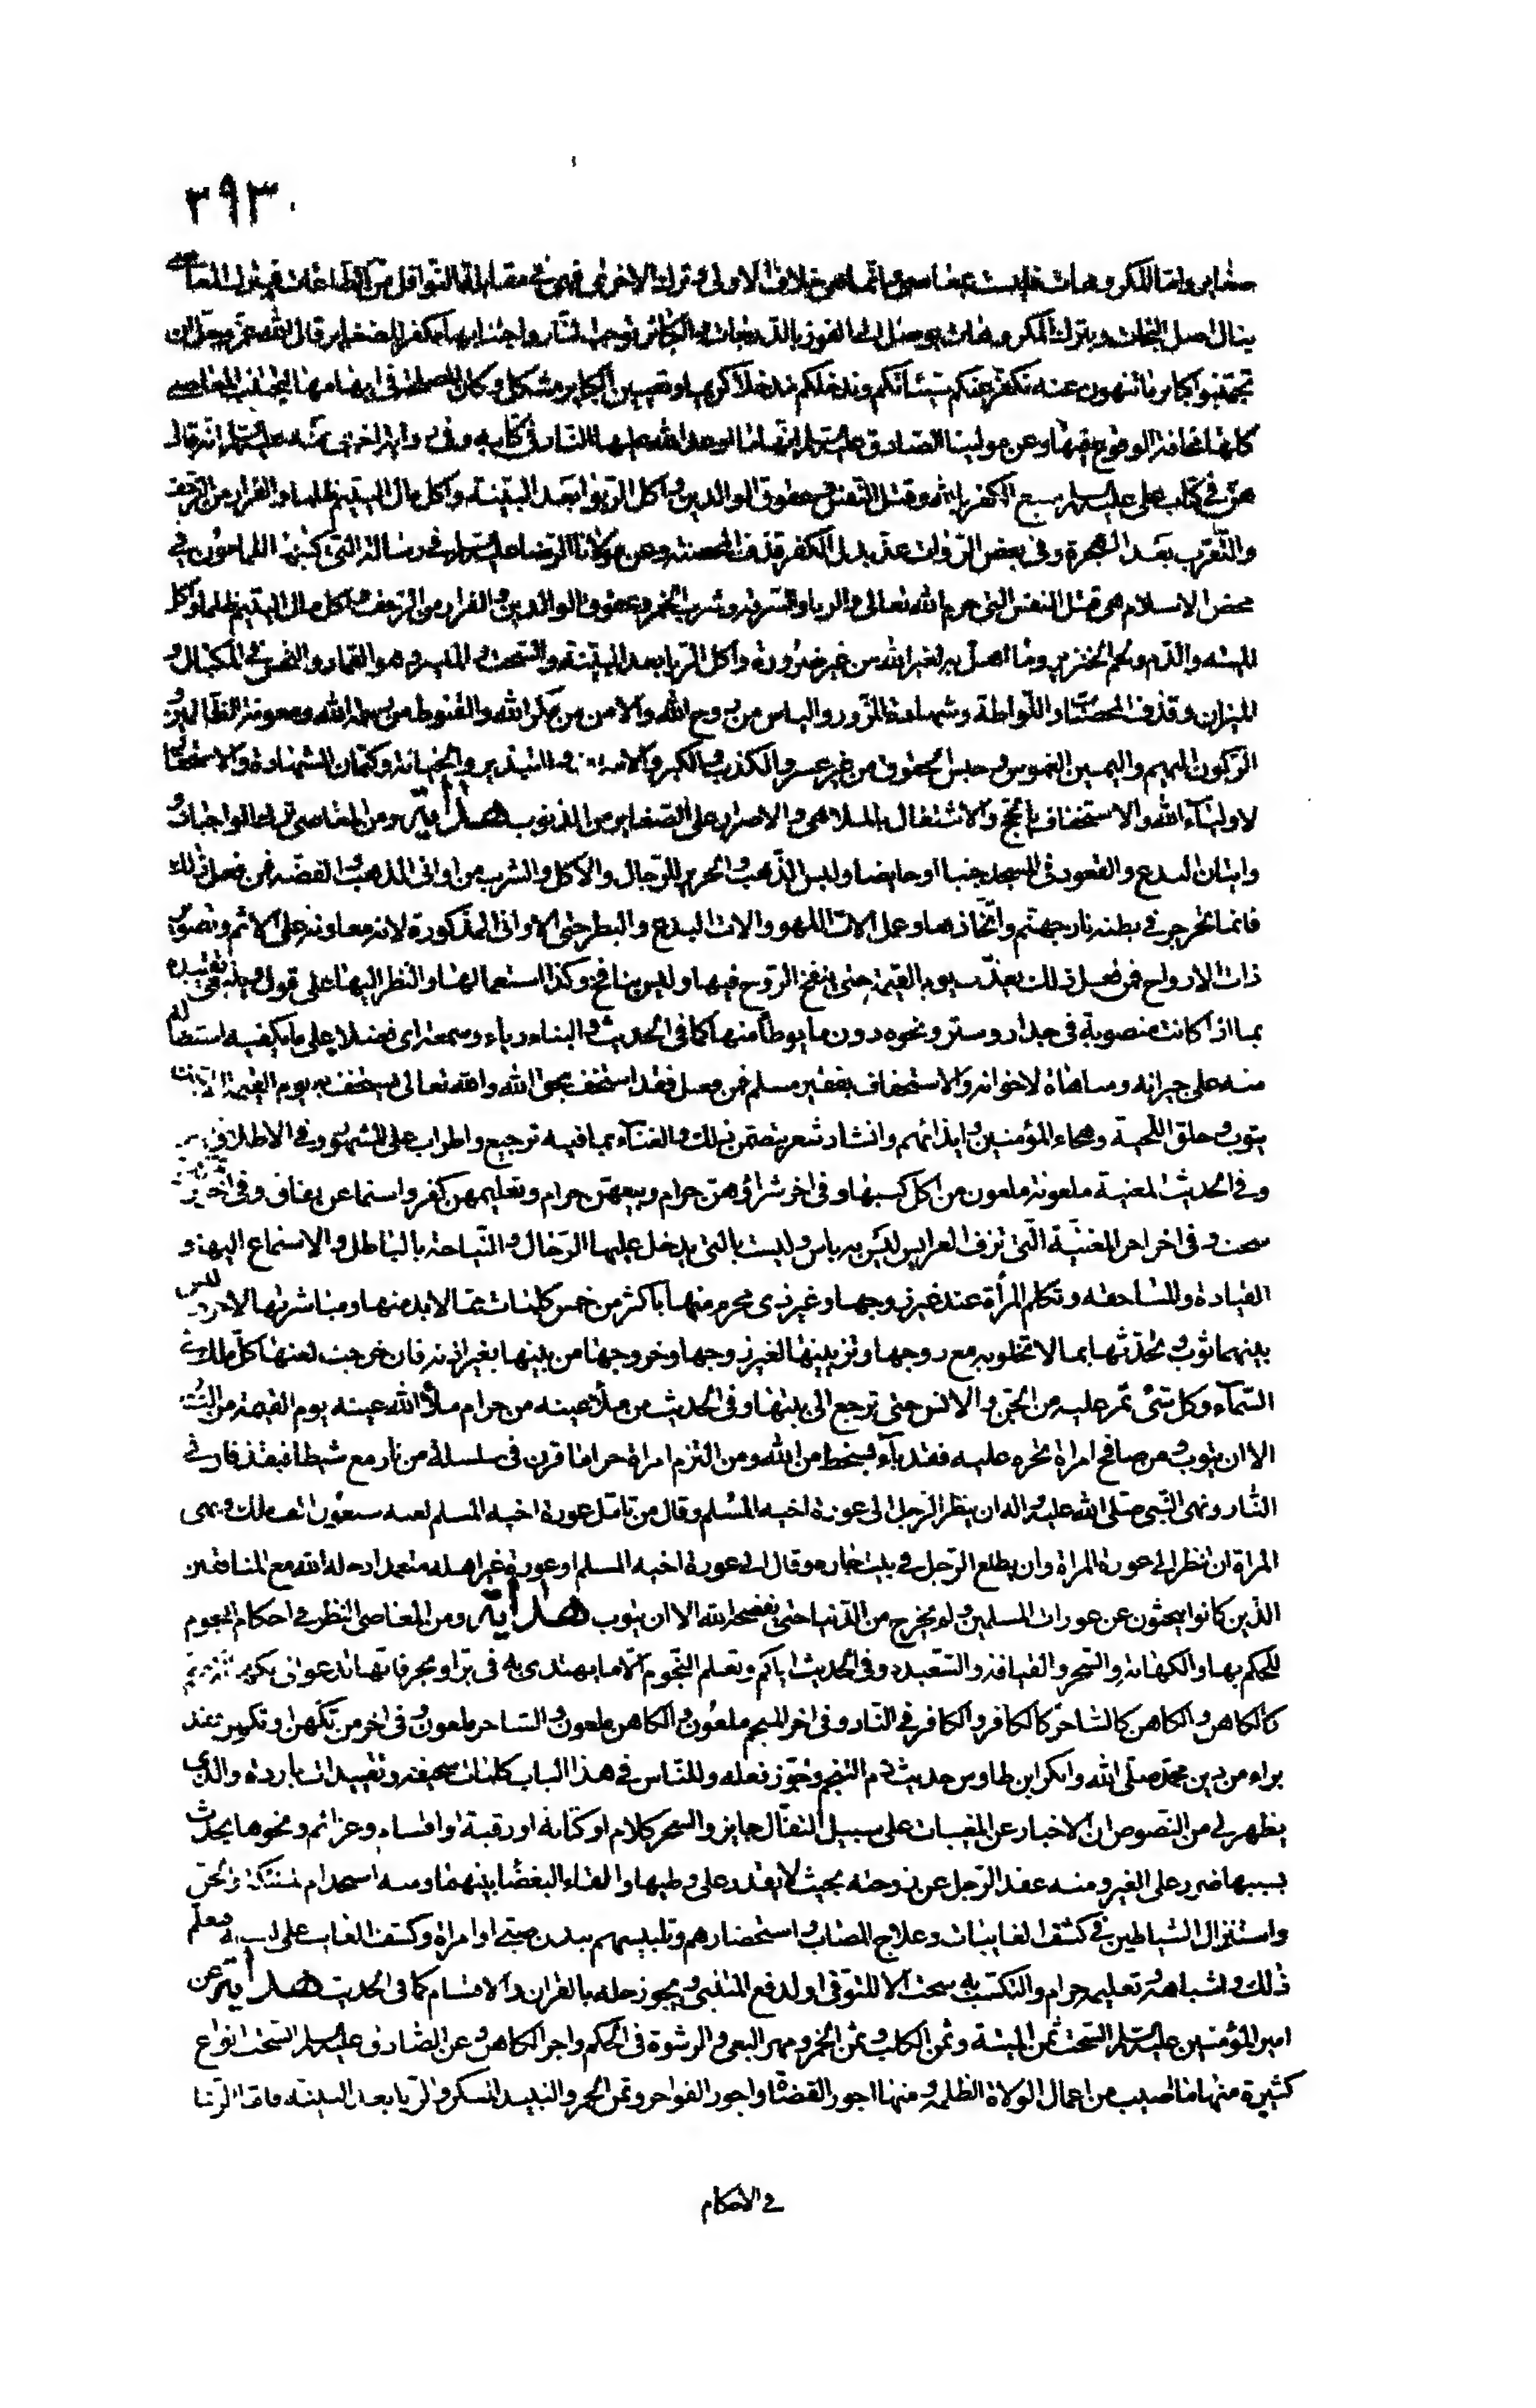 ٣٩٣
صغاير واما المكروهات فليست بمعاصي وانما هي خلاف الاولى وترك الاحرى فهي في مقابلة النوافل من الطاعات فبترك المعاصي
ينال اصل النجات وبترك المكروهات يوصل الى الفوز بالدرجات والكبائر توجب النار واجتنابها يكفر الصغاير قال الله عز وجل ان
تجتنبوا كباير ما تنهون عنه نكفر عنكم سيئاتكم وندخلكم مدخلا كريما وتعيين الكباير مشكل وكان المصلحة في ابهامها ليجتنب المعاصي
كلها مخافة الوقوع فيها وعن مولينا الصادق عليه السلام انها ما اوعد الله عليها النار في كتابه وفي رواية اخرى عنه عليه السلام انه قال
هن في كتاب علي عليه السلام سبع الكفر بالله وقتل النفس وعقوق الوالدين واكل الربوا بعد البينة واكل مال اليتيم ظلما والفرار من الزحف
والتعرب بعد الهجرة وفي بعض الروايات عد بدل الكفر قذف المحصنة وعن مولانا الرضا عليه السلام في رسالته التي كتبها للمامون في
محض الاسلام هي قتل النفس التي حرم الله تعالى والزنا والسرقة وشرب الخمر وعقوق الوالدين والفرار من الزحف واكل مال اليتيم ظلما واكل
الميتة والدم ولحم الخنزير وما اهل به لغير الله من غير ضرورة واكل الربا بعد البينة والسحت والميسر وهو القمار والبخس في المكيال و
الميزان وقذف المحصنات واللواطة وشهادة الزور والياس من روح الله والامن من مكر الله والقنوط من رحمة الله ومعونة الظالمين و
الركون اليهم واليمين الغموس وحبس الحقوق من غير عسر والكذب والكبر والاسراف والتبذير والخيانة وكتمان الشهادة والاستخفاف
لاولياء الله والاستخفاف بالحج والاشتغال بالملاهي والاصرار على الصغاير من الذنوب هداية ومن المعاصي ترك الواجبات و
واتيان البدع والقعود في المسجد جنبا او حايضا ولبس الذهب والحرير للرجال والاكل والشرب من اواني الذهب والفضة فمن فعل ذلك
فانما يجرجر في بطنه نار جهنم واتخاذها وعمل الات اللهو والات البدع والبطر حتى الاواني المذكورة لانه معاونة على الاثم وتصوير
ذات الارواح فمن فعل ذلك يعذب يوم القيمة حتى ينفخ الروح فيها وليس بنافخ وكذا استعمالها والنظر اليها على قول وينبغي تقييده
بما اذا كانت منصوبة في جدار وستر ونحوه دون ما يوطأ منها كما في الحديث والبناء رياء وسمعة اي فضلا على ما يكفيه استطالة
منه على جيرانه ومباهاة لاخوانه والاستخفاف بفقير مسلم فمن فعل فقد استخف بحق الله والله تعالى يستخف به يوم القيمة الا ان
يتوب وحلق اللحية وهجاء المؤمنين وايذائهم وانشاد شعر يتضمن ذلك والغناء بما فيه ترجيع واطراب على المشهور وفي الاطلاق
وفي الحديث المغنية ملعونة ملعون من اكل كسبها وفي اخر شراؤهن حرام وبيعهن حرام وتعليمهن كفر واستماعهن نفاق وفي اخر
سحت وفي اخر اجر المغنية التي تزف العرايس ليس به باس وليست بالتي يدخل عليها الرجال والنياحة بالباطل والاستماع اليها و
القيادة والمساحقة وتكلم المرأة عند غير زوجها وغير ذي محرم منها باكثر من خمس كلمات مما لا بد منها ومباشرتها الاخرى وليس
بينهما ثوب وتحدثها بما لا تخلو به مع زوجها وتزيينها لغير زوجها وخروجها من بيتها بغير اذنه فان خرجت لعنها كل ملك في
السماء وكل شئ تمر عليه من الجن والانس حتى ترجع الى بيتها وفي الحديث من ملأ عينه من حرام ملأ الله عينه يوم القيمة من النار
الا ان يتوب ومن صافح امراة تحرم عليه فقد باء بسخط من الله ومن التزم امراة حراما قرن في سلسلة من نار مع شيطان فيقذفان في
النار ونهى النبي صلى الله عليه واله ان ينظر الرجل الى عورة اخيه المسلم وقال من تامل عورة اخيه المسلم لعنه سبعون الف ملك ونهى
المراة ان تنظر الى عورة المراة وان يطلع الرجل في بيت جاره وقال الى عورة اخيه المسلم او عورة غير اهله متعمدا ادخله الله مع المنافقين
الذين كانوا يبحثون عن عورات المسلمين ولم يخرج من الدنيا حتى يفضحه الله الا ان يتوب هداية ومن المعاصي النظر في احكام النجوم
للحكم بها والكهانة والسحر والقيافة والشعبدة وفي الحديث اياكم وتعلم النجوم الا ما يهتدى به في بر او بحر فانها تدعو الى الكهانة
كالكاهن والكاهن كالساحر كالكافر والكافر في النار وفي اخر المنجم ملعون والكاهن ملعون والساحر ملعون وفي اخر من تكهن او تكهن له فقد
براء من دين محمد صلى الله وانكر ابن طاوس حديث ذم التنجيم وجوز فعله وللناس في هذا الباب كلمات سخيفة وتقييدات باردة والذي
يظهر لي من النصوص ان الاخبار عن المغيبات على سبيل التفال جايز والسحر كلام او كتابة او رقية او اقسام وعزائم ونحوها يحدث
بسببها ضرر على الغير ومنه عقد الرجل عن زوجته بحيث لا يقدر على وطيها والقاء البغضاء بينهما ومنه استخدام الملئكة والجن
واستنزال الشياطين في كشف الغايبات وعلاج المصاب واستحضارهم وتلبيسهم ببدن صبي او امراة وكشف الغايب على لسانه فعلم
ذلك واشباهه وتعليمه حرام والتكسب به سحت الا للتوقي او لدفع المتنبي ويجوز حله بالقران والاقسام كما في الحديث هداية عن
امير المؤمنين عليه السلام السحت ثمن الميتة وثمن الكلب وثمن الخمر ومهر البغي والرشوة في الحكم واجر الكاهن وعن الصادق عليه السلام السحت انواع
كثيرة منها ما اصيب من اعمال الولاة الظلمة ومنها اجور القضاة واجور الفواجر وثمن الخمر والنبيذ المسكر والربا بعد البينة فاما الرشا
في الاحكام